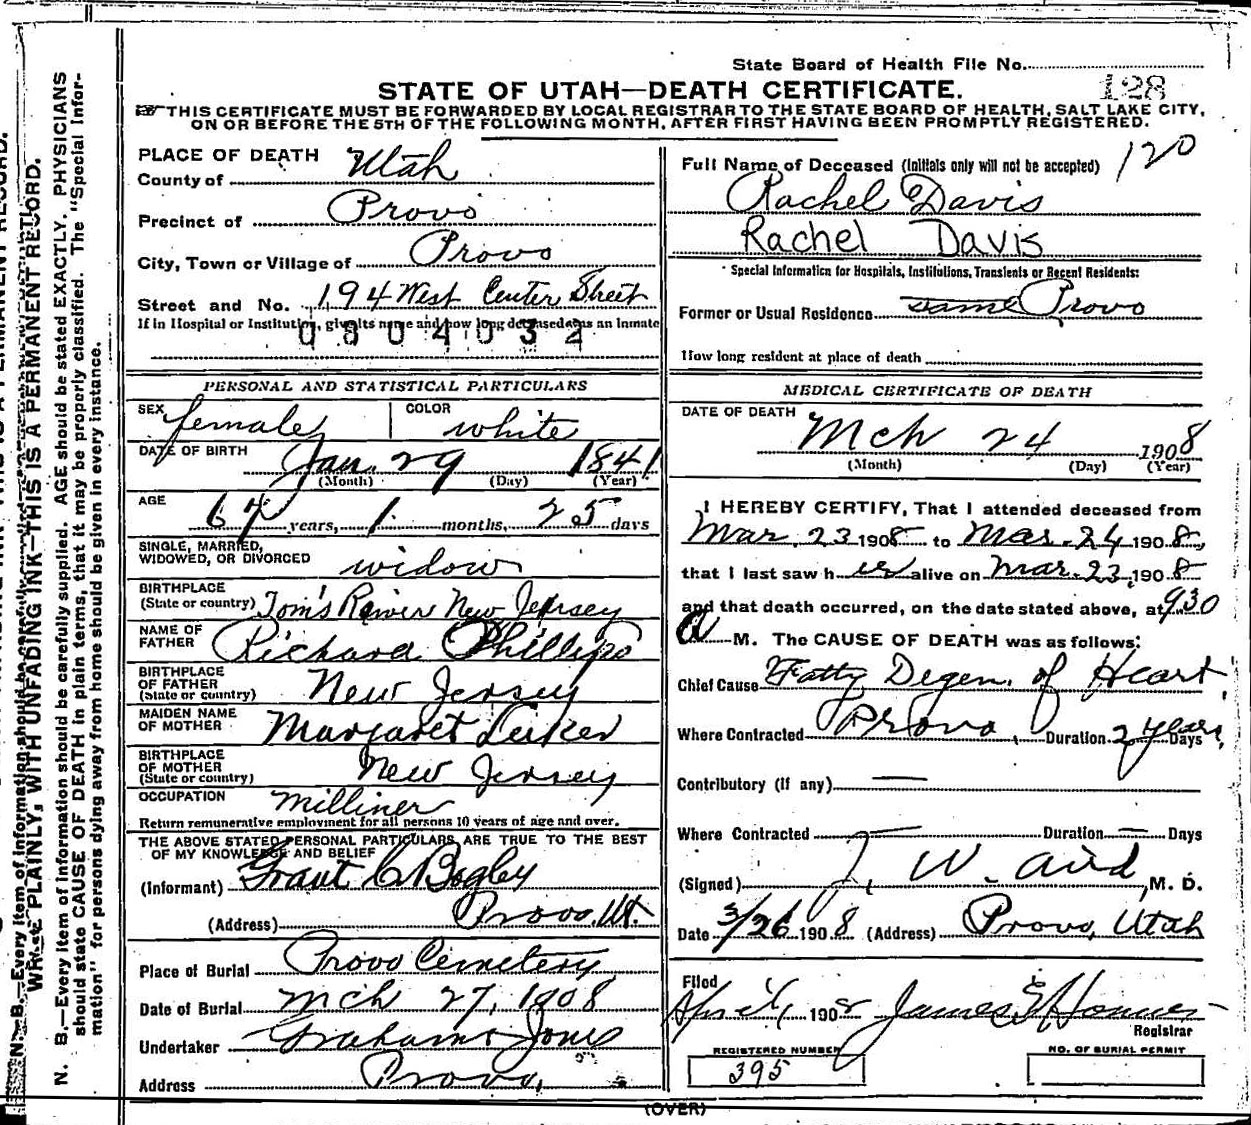 State Board of Health File No.
128
STATE OF UTAH—DEATH CERTIFICATE.
THIS CERTIFICATE MUST BE FORWARDED BY LOCAL REGISTRAR TO THE STATE BOARD OF HEALTH, SALT LAKE CITY,
ON OR BEFORE THE 5TH OF THE FOLLOWING MONTH, AFTER FIRST HAVING BEEN PROMPTLY REGISTERED.
PLACE OF DEATH
County of Utah
Precinct of Provo
City, Town or Village of Provo
Street and No. 194 West Center Street
If in Hospital or Institution, give its name and how long deceased was an inmate
0804032
PERSONAL AND STATISTICAL PARTICULARS
SEX female COLOR white
DATE OF BIRTH Jan. 29 1841
(Month) (Day) (Year)
AGE 67 years, 1 months, 25 days
SINGLE, MARRIED,
WIDOWED, OR DIVORCED widow
BIRTHPLACE
(State or country) Tom's River New Jersey
NAME OF
FATHER Richard Phillips
BIRTHPLACE
OF FATHER
(State or country) New Jersey
MAIDEN NAME
OF MOTHER Margaret
BIRTHPLACE
OF MOTHER
(State or country) New Jersey
OCCUPATION milliner
Return remunerative employment for all persons 10 years of age and over.
THE ABOVE STATED PERSONAL PARTICULARS ARE TRUE TO THE BEST
OF MY KNOWLEDGE AND BELIEF
(Informant) Grant C Bagley
(Address) Provo, Ut.
Place of Burial Provo Cemetery
Date of Burial Mch 27, 1908
Undertaker Graham & Jones
Address Provo,
Full Name of Deceased (Initials only will not be accepted) 120
Rachel Davis
Rachel Davis
Special Information for Hospitals, Institutions, Transients or Recent Residents:
Former or Usual Residence same Provo
How long resident at place of death
MEDICAL CERTIFICATE OF DEATH
DATE OF DEATH
Mch 24 1908
(Month) (Day) (Year)
I HEREBY CERTIFY, That I attended deceased from
Mar. 23 1908 to Mar. 24 1908,
that I last saw her alive on Mar. 23, 1908
and that death occurred, on the date stated above, at 930
a M. The CAUSE OF DEATH was as follows:
Chief Cause Fatty Degen. of Heart
Where Contracted Provo, Duration 2 years, Days
Contributory (if any) —
Where Contracted — Duration — Days
(Signed) J. W. Aird, M. D.
Date 3/26 1908 (Address) Provo, Utah
Filed
1908 James
Registrar
REGISTERED NUMBER
395
NO. OF BURIAL PERMIT
(OVER)
N. B.—Every item of information should be carefully supplied. AGE should be stated EXACTLY. PHYSICIANS
should state CAUSE OF DEATH in plain terms, that it may be properly classified. The "Special Infor-
mation" for persons dying away from home should be given in every instance.
WRITE PLAINLY, WITH UNFADING INK—THIS IS A PERMANENT RECORD.